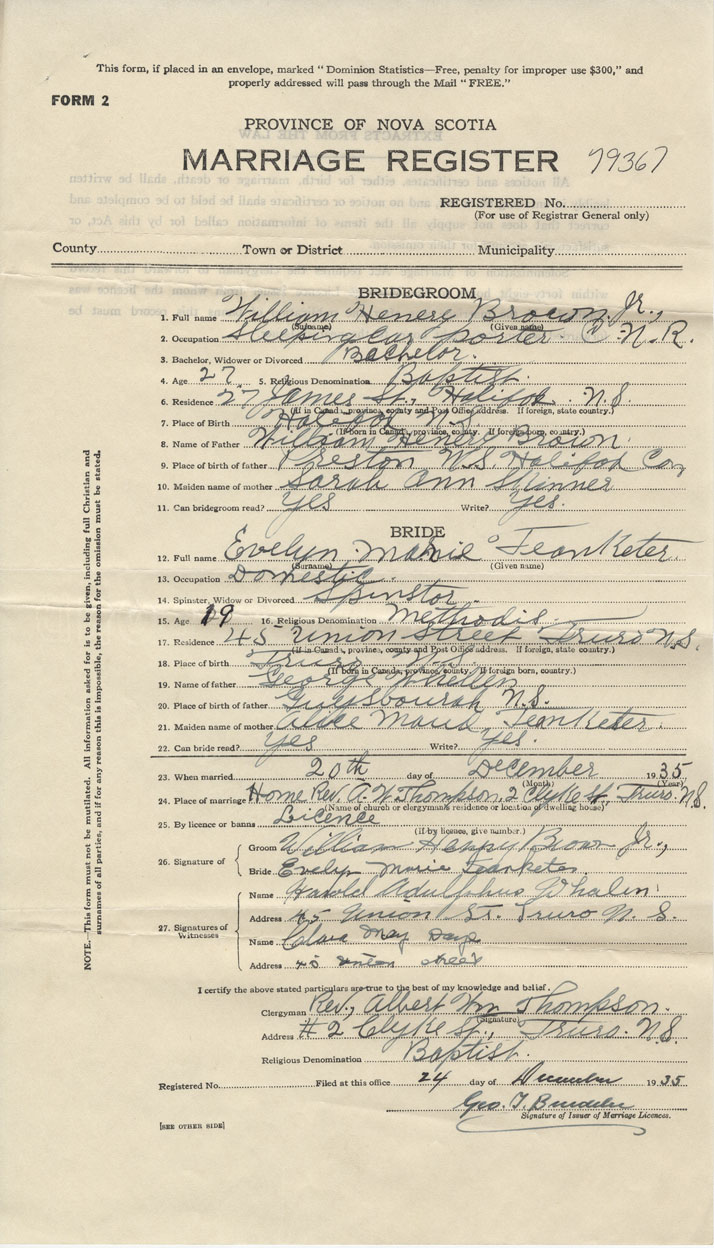 This form, if placed in an envelope, marked " Dominion Statistics—Free, penalty for improper use $300," and
properly addressed will pass through the Mail "FREE."
FORM 2
PROVINCE OF NOVA SCOTIA
MARRIAGE REGISTER 79367
REGISTERED No.
(For use of Registrar General only)
County Town or District Municipality
BRIDEGROOM
1. Full name William Henery Brown. Jr.,
(Surname) (Given name)
2. Occupation Sleeping Car porter. C.N.R.
3. Bachelor, Widower or Divorced Bachelor.
4. Age 27. 5. Religious Denomination Baptist.
6. Residence 27 James St., Halifax. N.S.
(If in Canada, province, county and Post Office address. If foreign, state country.)
7. Place of Birth Halifax N.S.
(If born in Canada, province, county. If foreign born, country.)
8. Name of Father William Henery Brown.
9. Place of birth of father Preston N.S. Halifax Co,
10. Maiden name of mother Sarah Ann Skinner
11. Can bridegroom read? Yes Write? Yes.
BRIDE
12. Full name Evelyn Marie Teanketer.
(Surname) (Given name)
13. Occupation Domestic.
14. Spinster, Widow or Divorced Spinstor.
15. Age 19 16. Religious Denomination Methodis
17. Residence 45 Union Street Truro N.S.
(If in Canada, province, county and Post Office address. If foreign, state country.)
18. Place of birth Truro N.S.
(If born in Canada, province, county. If foreign born, country.)
19. Name of father George Whelen
20. Place of birth of father Guysbourah N.S.
21. Maiden name of mother Alice Maud Teanketer.
22. Can bride read? Yes Write? Yes.
23. When married 20th day of December 1935
(Month) (Year)
24. Place of marriage Home Rev. A. W. Thompson, 2 Clyke St, Truro. N.S.
(Name of church or clergyman's residence or location of dwelling house)
25. By licence or banns Licence
(If by licence, give number.)
26. Signature of
Groom William Brown Jr.,
Bride Evelyn Marie Teanketer.
27. Signatures of Witnesses
Name Harold Adulphus Whalen
Address 45 Union St. Truro N. S.
Name May
Address 45 union street
I certify the above stated particulars are true to the best of my knowledge and belief.
Clergyman Rev., Albert Wm Thompson.
(Signature)
Address # 2 Clyke St., Truro. N.S.
Religious Denomination Baptist.
Registered No. Filed at this office 24 day of December 1935
Geo. T.
Signature of Issuer of Marriage Licences.
[SEE OTHER SIDE]
NOTE.—This form must not be mutilated. All information asked for is to be given, including full Christian and
surnames of all parties, and if for any reason this is impossible, the reason for the omission must be stated.